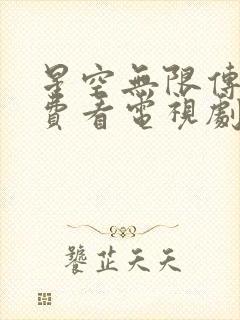 星空無限傳
費看電視劇
饕芷天天